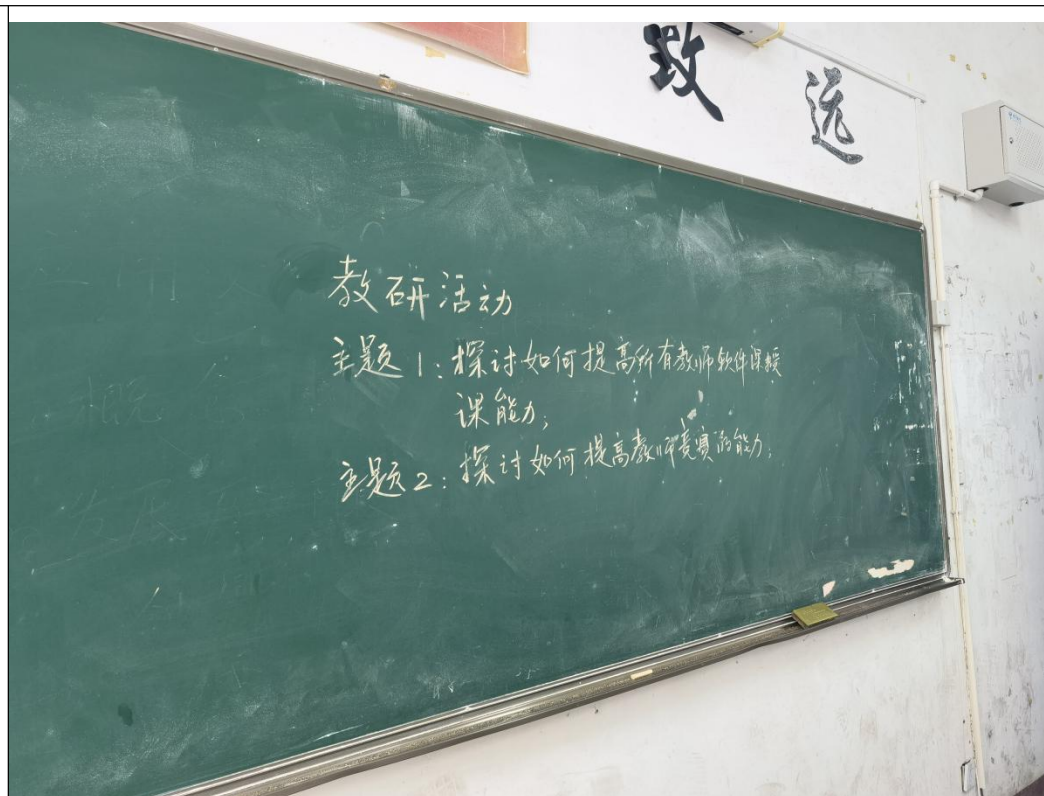 致远
教研活动
主题1:探讨如何提高所有教师软件课授
课能力;
主题2:探讨如何提高教师竞赛的能力;